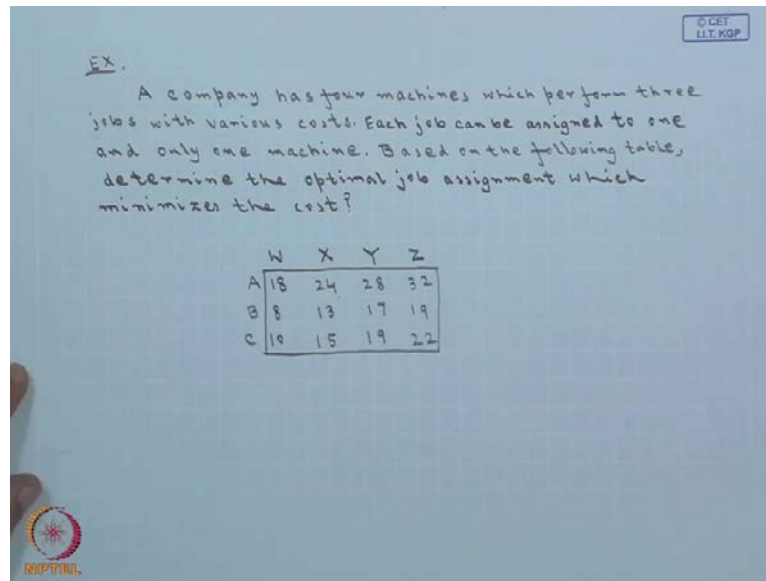 © CET
I.I.T. KGP
EX.
A company has four machines which perform three
jobs with various costs. Each job can be assigned to one
and only one machine. Based on the following table,
determine the optimal job assignment which
minimizes the cost?
W X Y Z
A 18 24 28 32
B 8 13 17 19
C 10 15 19 22
NPTEL